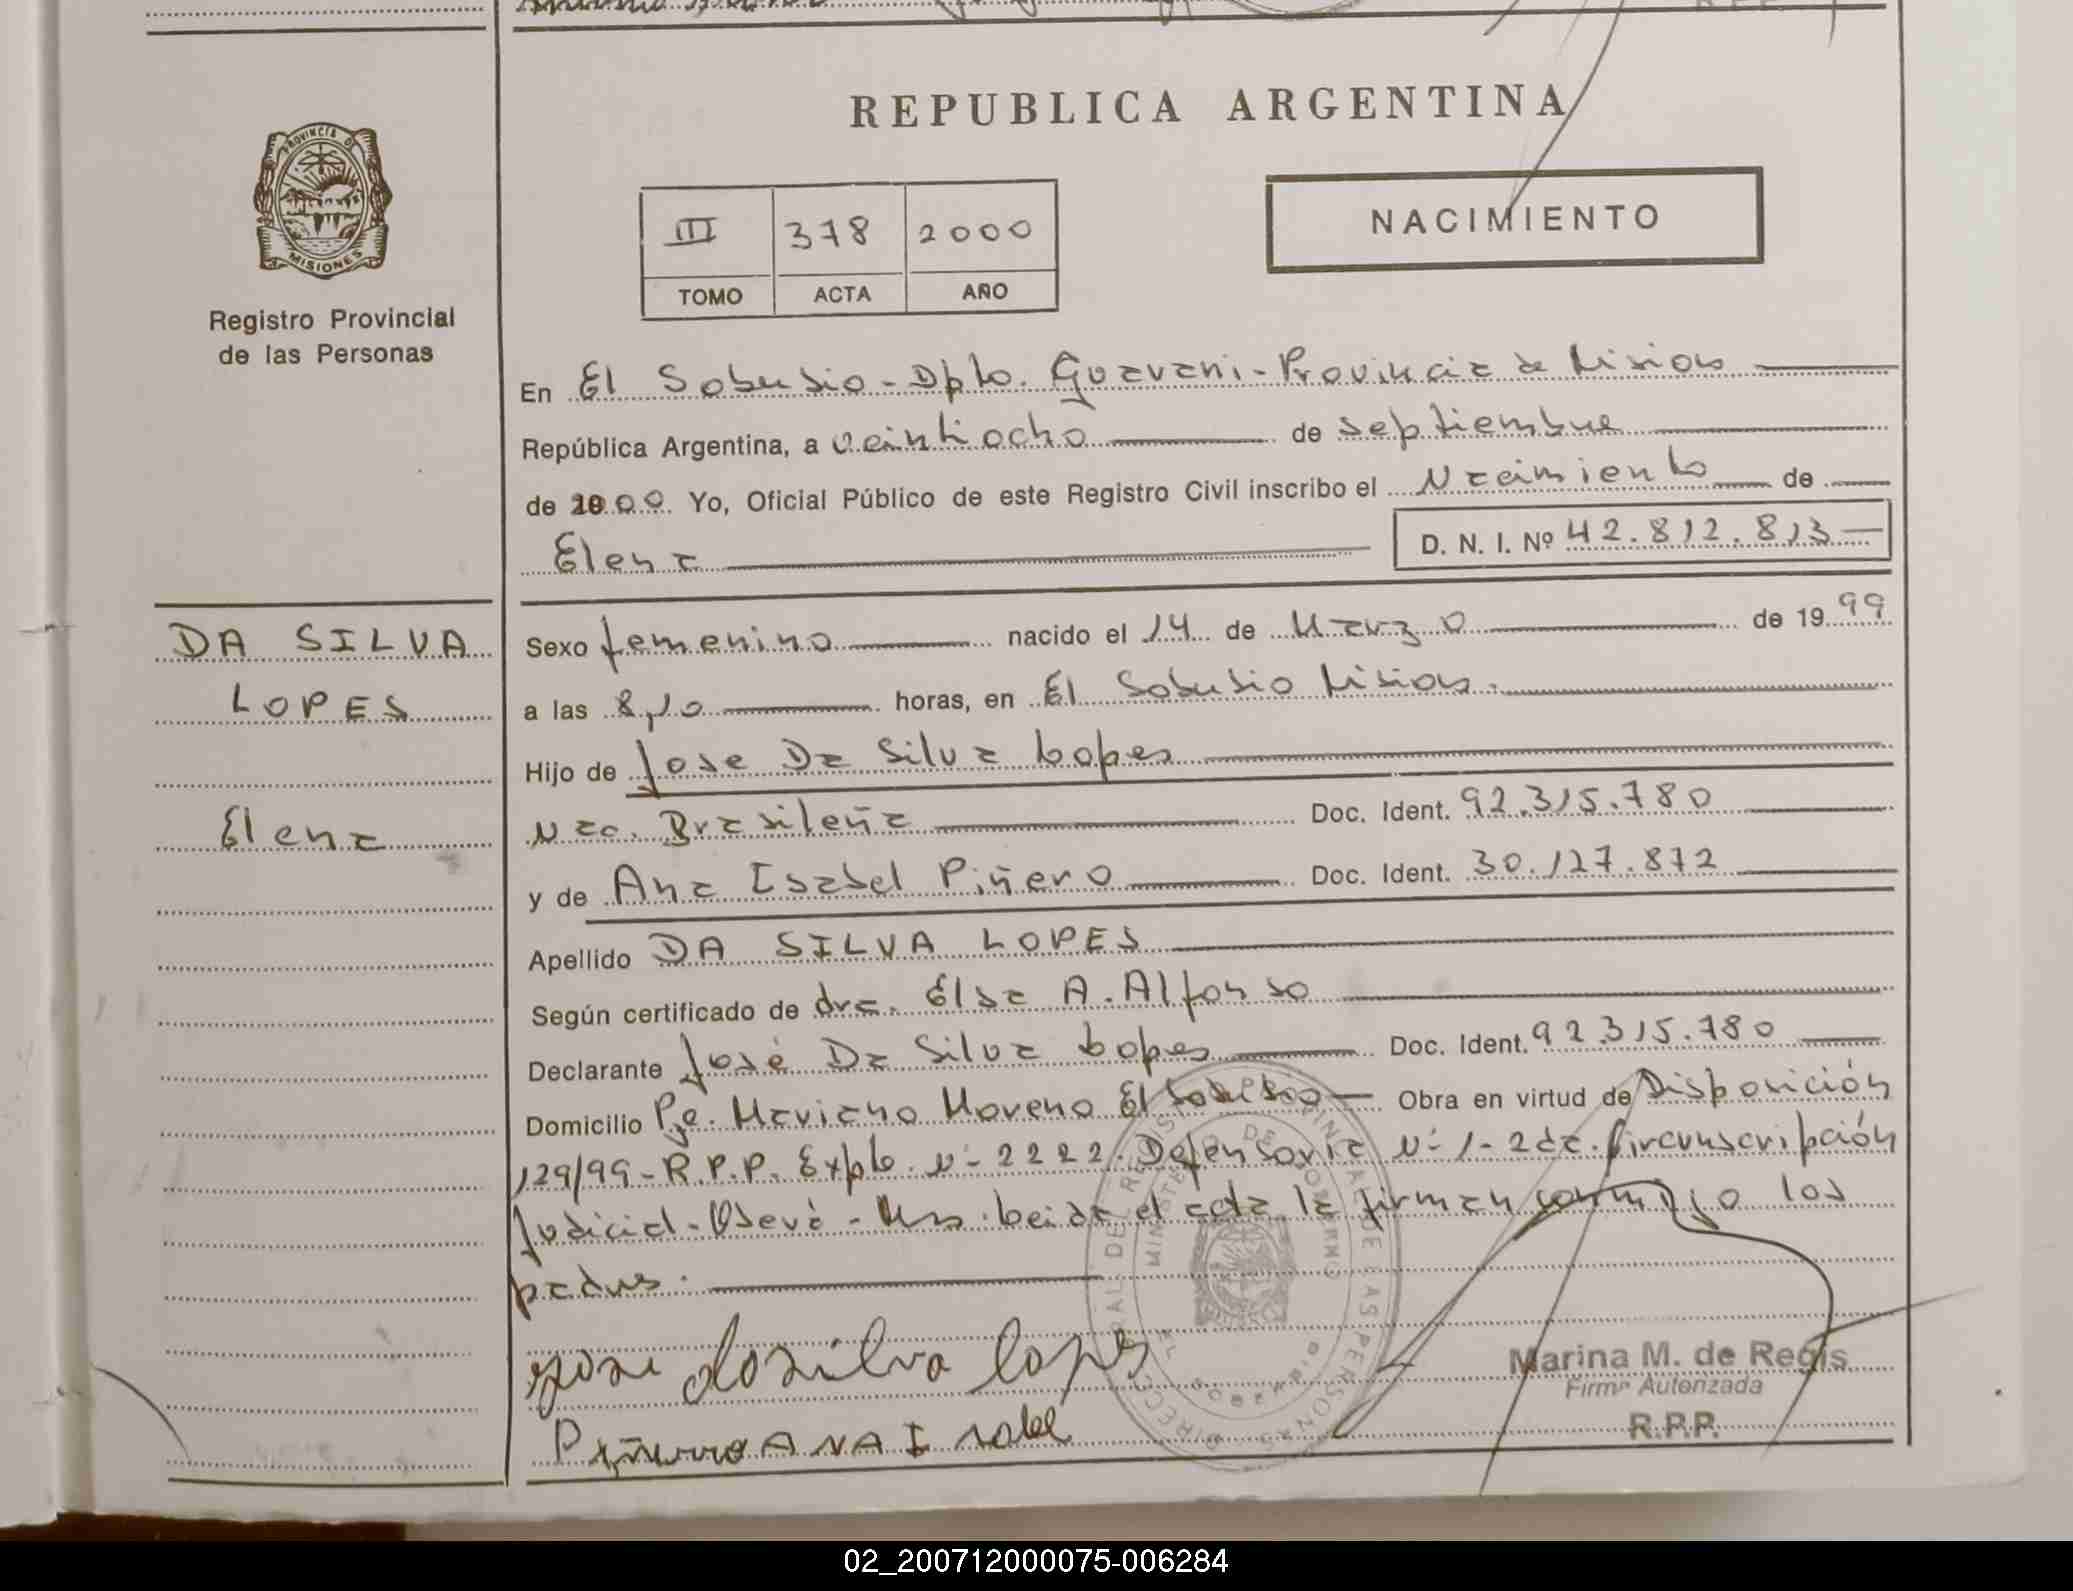 REPUBLICA ARGENTINA
PROVINCIA DE
MISIONES
Registro Provincial
de las Personas
III 378 2000
TOMO ACTA AÑO
NACIMIENTO
En El Soberbio - Dpto. Guarani - Provincia de Misiones
República Argentina, a veintiocho de septiembre
de 2000. Yo, Oficial Público de este Registro Civil inscribo el Nacimiento de
Elena D. N. I. Nº 42.812.813
DA SILVA
LOPES
Elena
Sexo femenino nacido el 14 de Marzo de 1999
a las 8,10 horas, en El Soberbio Misiones.
Hijo de Jose Da Silva Lopes
Nac. Brasileña Doc. Ident. 92.315.780
y de Ana Isabel Piñero Doc. Ident. 30.127.872
Apellido DA SILVA LOPES
Según certificado de dra. Elsa A. Alfonso
Declarante José Da Silva Lopes Doc. Ident. 92.315.780
Domicilio Pje. Mariano Moreno El Soberbio Obra en virtud de Disposición
129/99 - R.P.P. Expte. Nº 2222. Defensoria Nº 1 - 2da. Circunscripción
Judicial - Oberá - Mns. Leida el acta la firman conmigo los
padres.
Jose da silva lopes
Piñero ANA Isabel
Marina M. de Regis
Firma Autorizada
R.P.P.
02_200712000075-006284